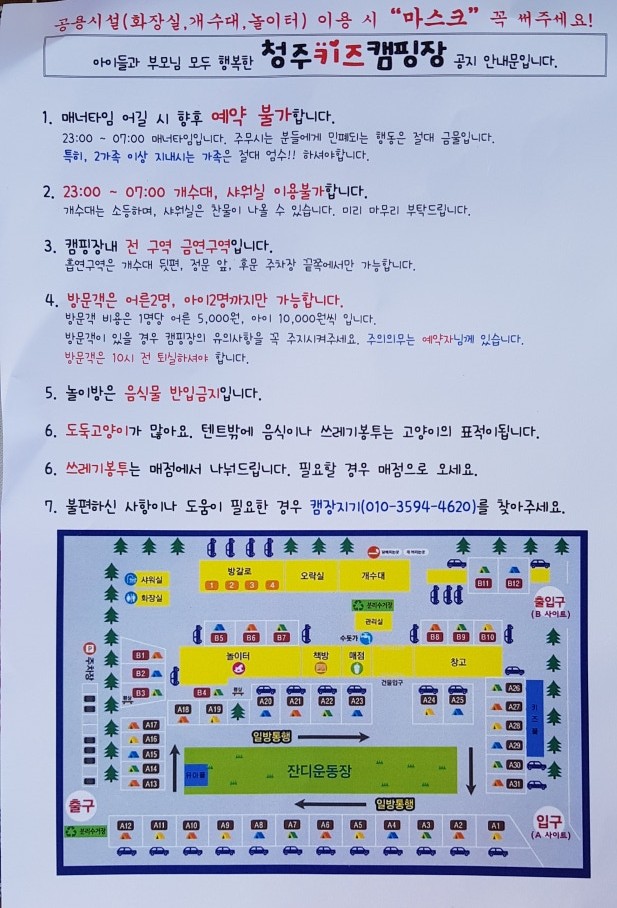 공용시설(화장실,개수대,놀이터) 이용 시 "마스크" 꼭 써주세요!
아이들과 부모님 모두 행복한 청주키즈캠핑장 공지 안내문입니다.
1. 매너타임 어길 시 향후 예약 불가합니다.
23:00 ~ 07:00 매너타임입니다. 주무시는 분들에게 민폐되는 행동은 절대 금물입니다.
특히, 2가족 이상 지내시는 가족은 절대 엄수!! 하셔야합니다.
2. 23:00 ~ 07:00 개수대, 샤워실 이용불가합니다.
개수대는 소등하며, 샤워실은 찬물이 나올 수 있습니다. 미리 마무리 부탁드립니다.
3. 캠핑장내 전 구역 금연구역입니다.
흡연구역은 개수대 뒷편, 정문 앞, 후문 주차장 끝쪽에서만 가능합니다.
4. 방문객은 어른2명, 아이2명까지만 가능합니다.
방문객 비용은 1명당 어른 5,000원, 아이 10,000원씩 입니다.
방문객이 있을 경우 캠핑장의 유의사항을 꼭 주지시켜주세요. 주의의무는 예약자님께 있습니다.
방문객은 10시 전 퇴실하셔야 합니다.
5. 놀이방은 음식물 반입금지입니다.
6. 도둑고양이가 많아요. 텐트밖에 음식이나 쓰레기봉투는 고양이의 표적이됩니다.
6. 쓰레기봉투는 매점에서 나눠드립니다. 필요할 경우 매점으로 오세요.
7. 불편하신 사항이나 도움이 필요한 경우 캠장지기(010-3594-4620)를 찾아주세요.
샤워실
화장실
방갈로
1 2 3 4
오락실
개수대
B11 B12
출입구
(B 사이트)
분리수거장
관리실
수돗가
B5 B6 B7
B8 B9 B10
P
주차장
B1
B2
B3
놀이터
책방
매점
창고
건물입구
B4
A18 A19
A20 A21 A22 A23
A24 A25
A26
A27
A28
A29
A30
A31
키즈풀
A17
A16
A15
A14
A13
일방통행
잔디운동장
일방통행
출구
분리수거장
A12 A11 A10 A9 A8 A7 A6 A5 A4 A3 A2 A1
입구
(A 사이트)